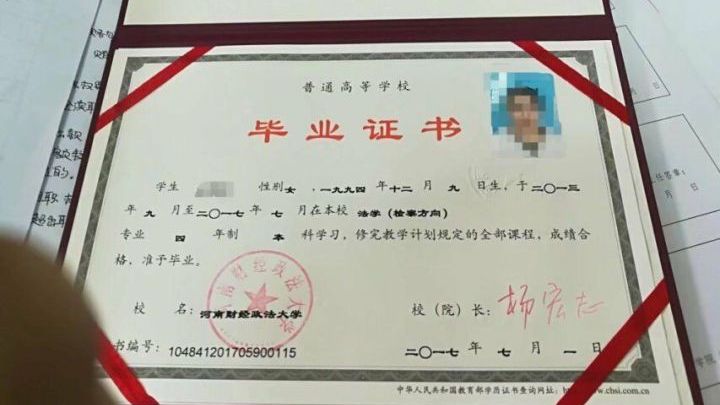 普通高等学校
毕业证书
学生 性别女，一九九四年十二月九日生，于二〇一三
年九月至二〇一七年七月在本校 法学（检察方向）
专业 四 年制 本 科学习，修完教学计划规定的全部课程，成绩合
格，准予毕业。
校 名：河南财经政法大学
校（院）长：杨宏志
书编号：104841201705900115
二〇一七年七月一日
中华人民共和国教育部学历证书查询网址：http://www.chsi.com.cn